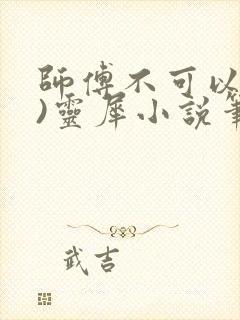 師傅不可以
)靈犀小說
武吉